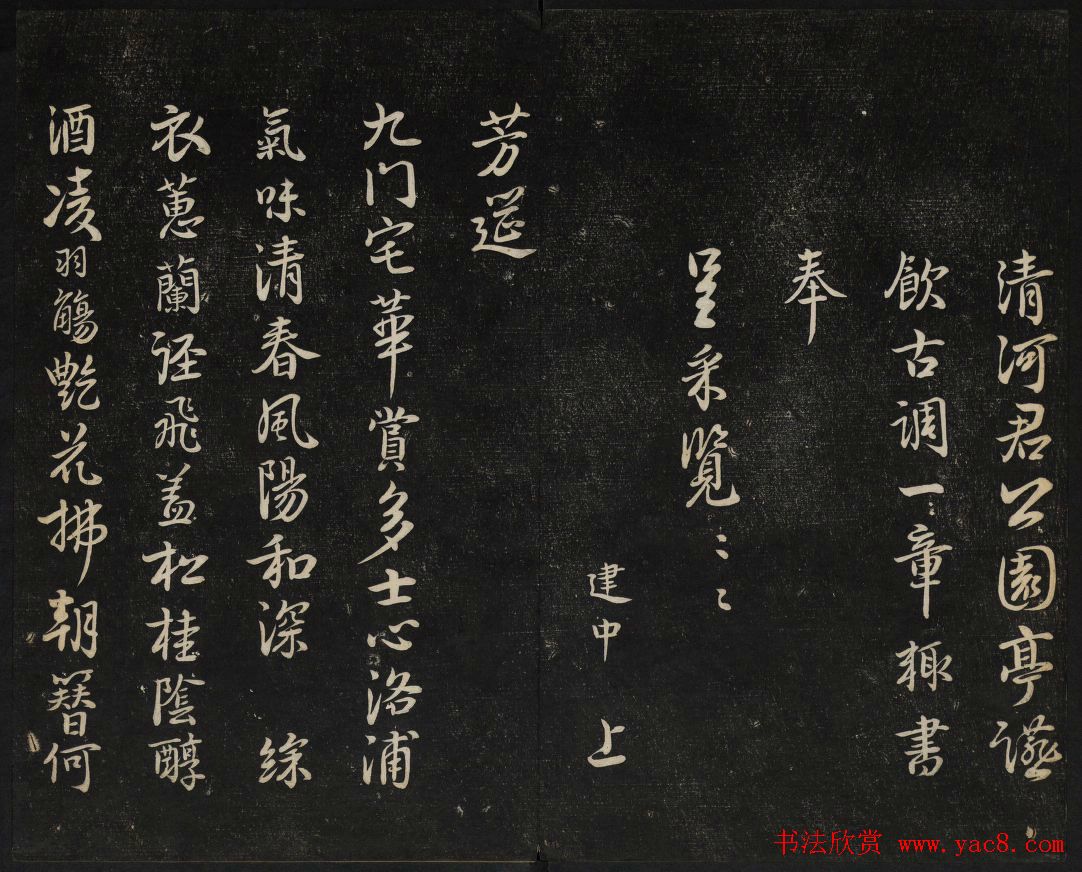 清河君公園亭讌
飲古調一章輙書
奉
呈采覽
建中 上
芳筵
九門宅華賞多士心洛浦
氣味清春風陽和深 綵
衣蕙蘭徑飛盖松桂陰醇
酒凌羽觴艷花拂朝簪何
书法欣赏 www.yac8.com